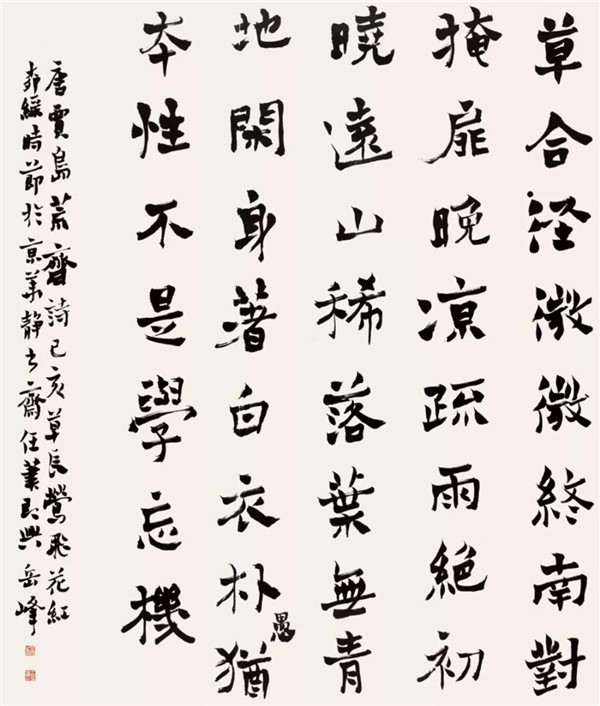 草合径微微終南對
掩扉晚凉疏雨絶初
曉遠山稀落葉無青
地閑身著白衣朴愚猶
本性不是學忘機
唐賈島荒齋詩己亥草長鶯飛花紅
柳緑時節於京華静齋任筆即興岳峰